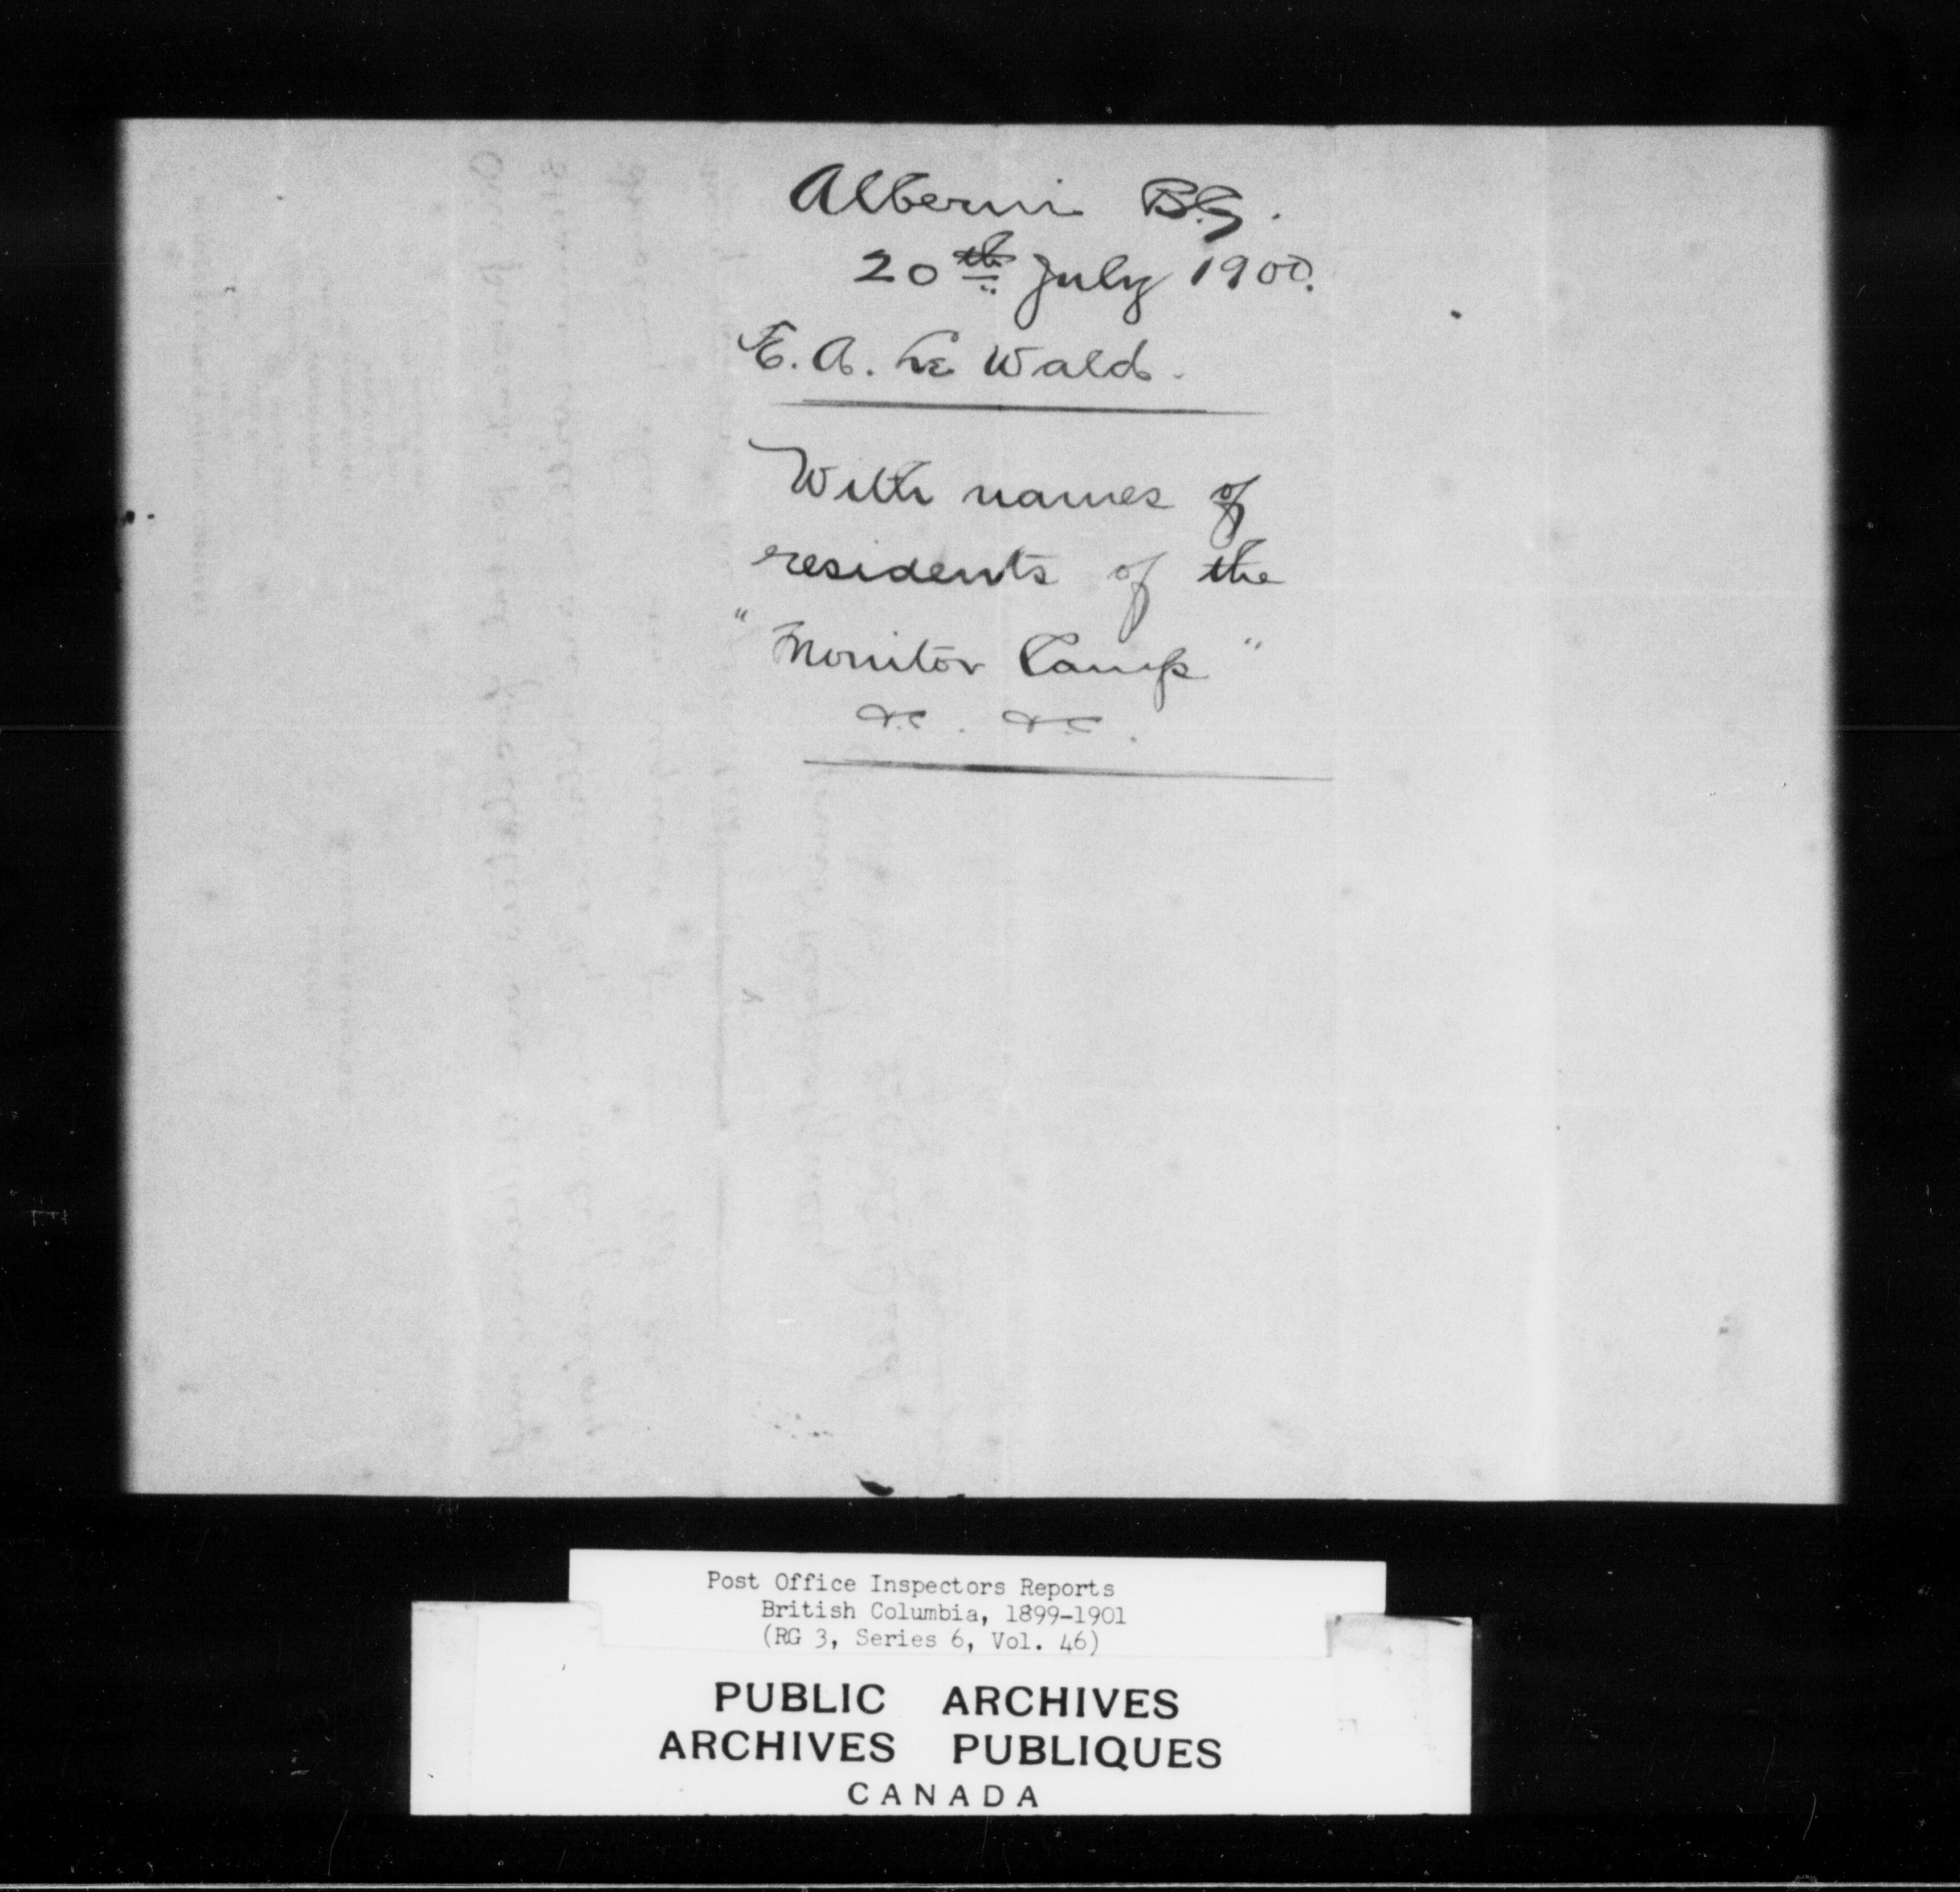 Alberni B.C.
20th July 1900.
E. A. Le Wald.
With names of
residents of the
"Monitor Camp"
&c. &c.
Post Office Inspectors Reports
British Columbia, 1899-1901
(RG 3, Series 6, Vol. 46)
PUBLIC ARCHIVES
ARCHIVES PUBLIQUES
CANADA